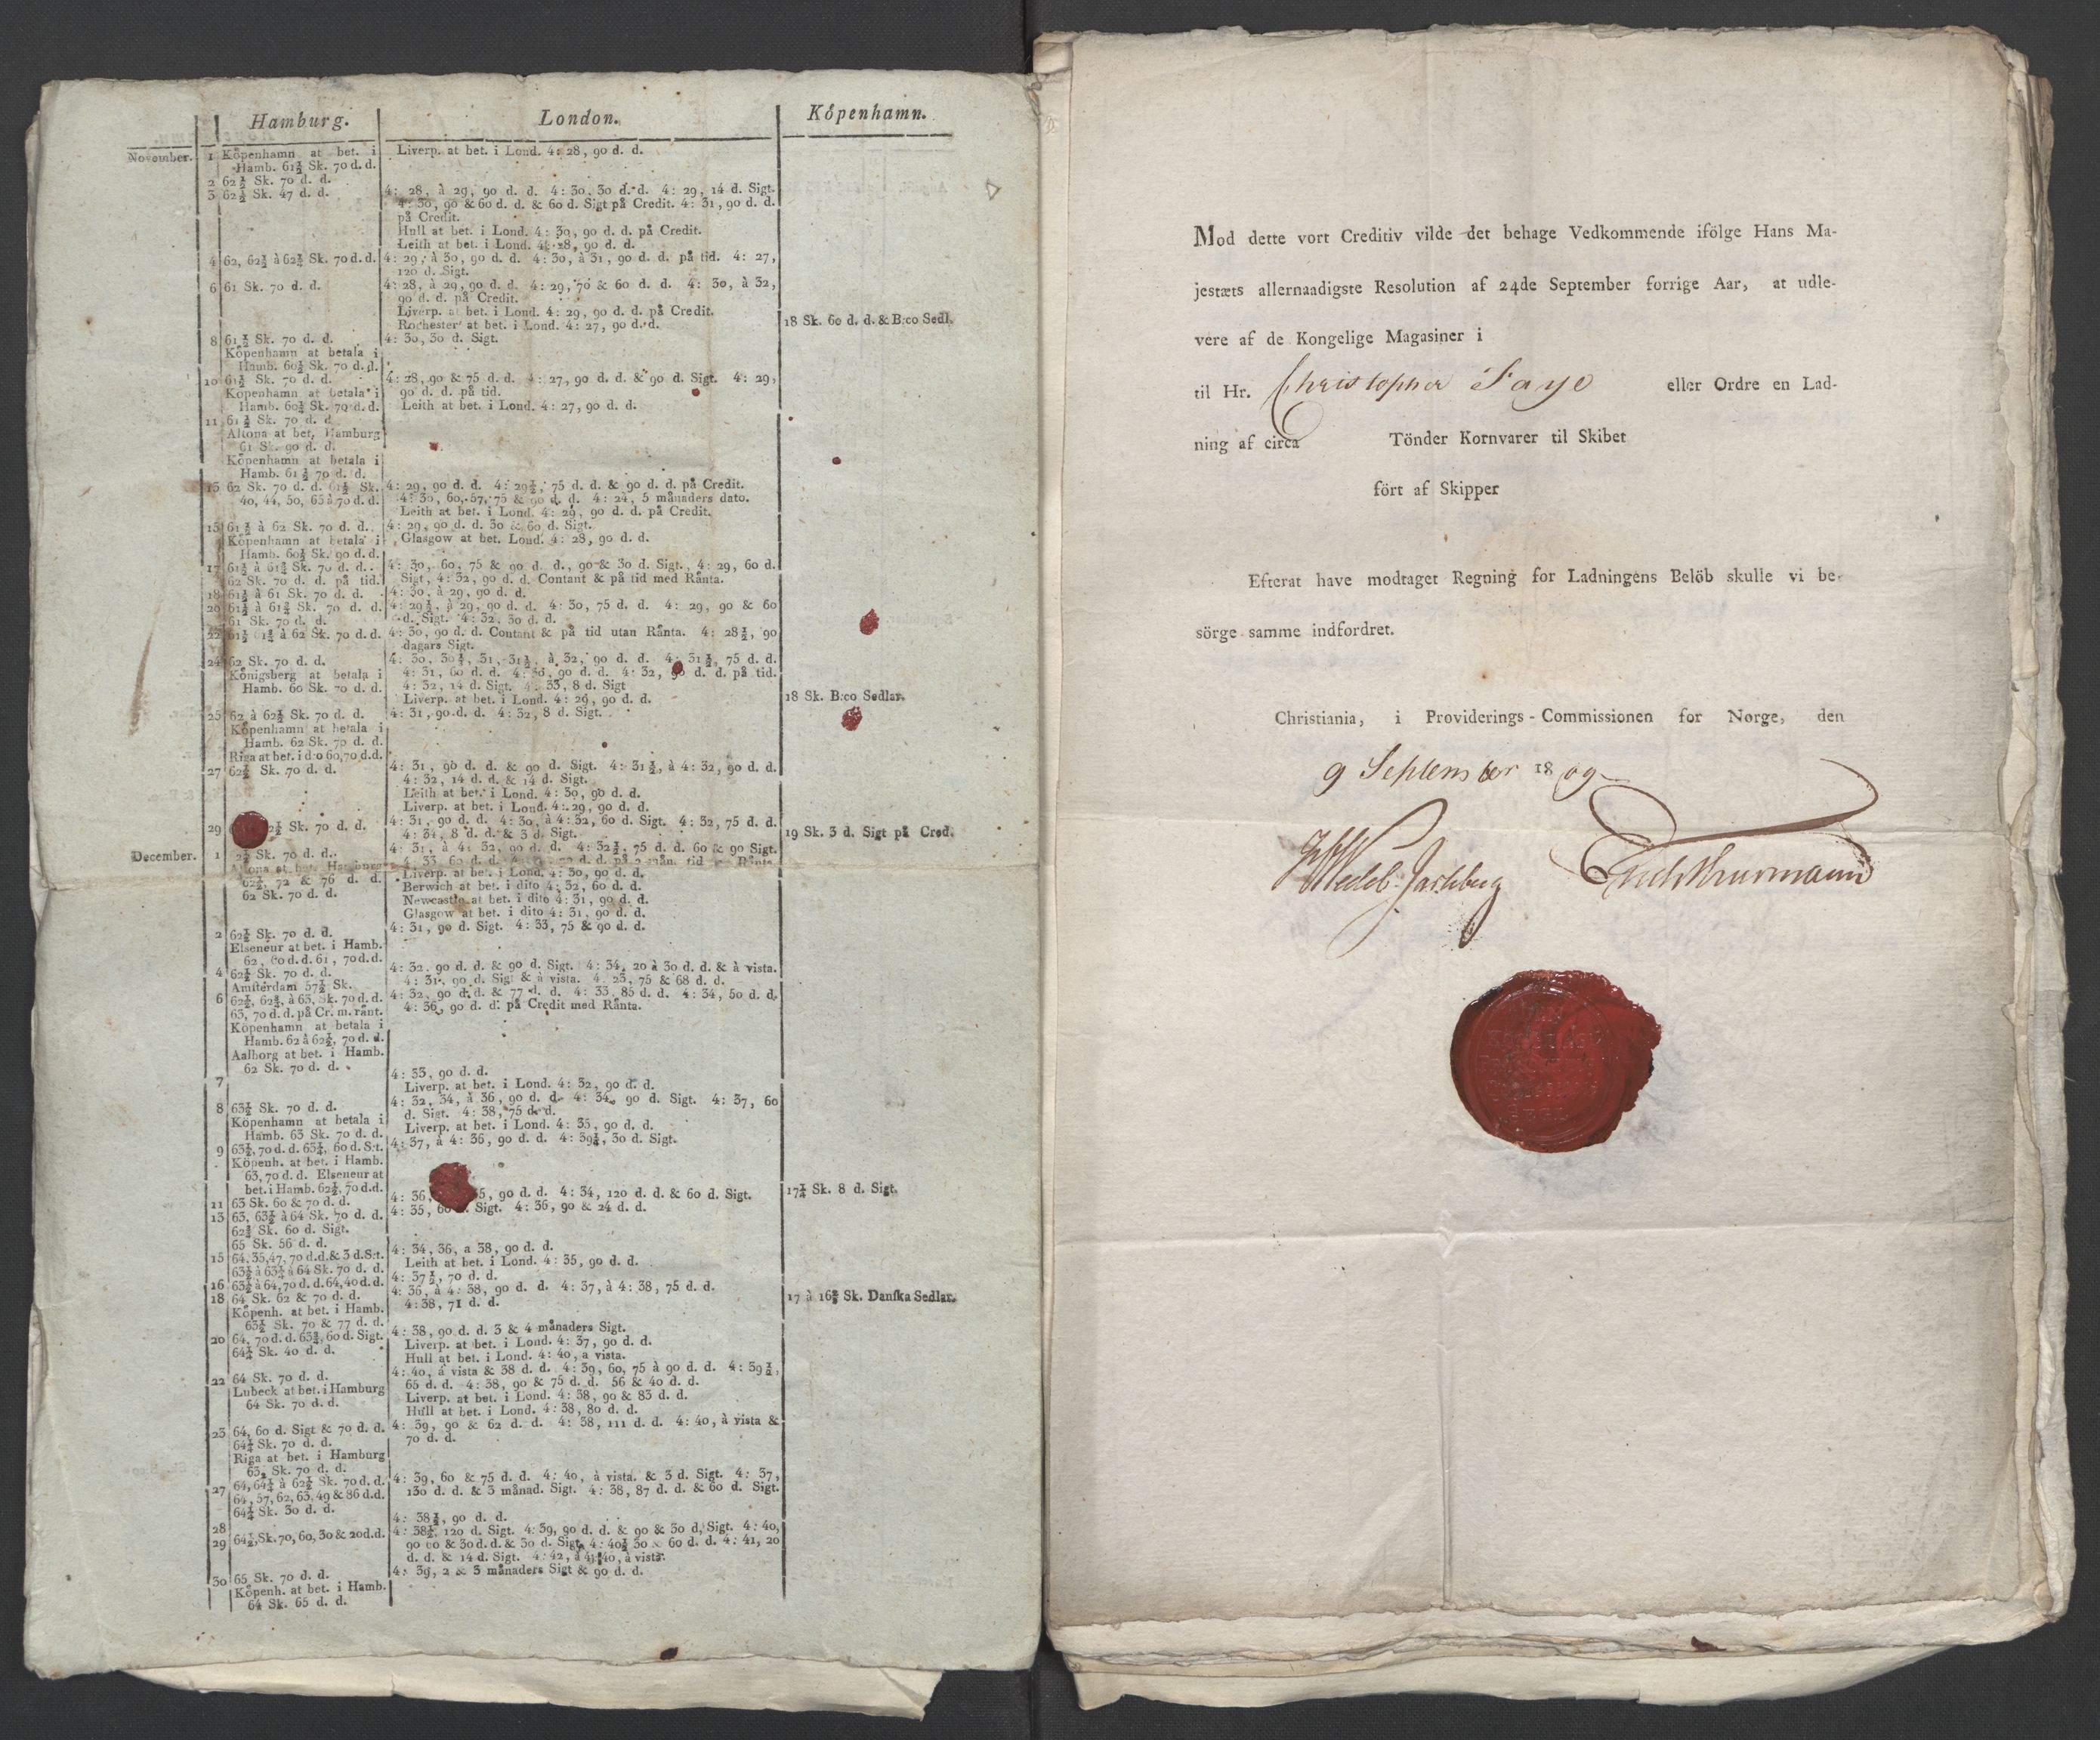 Hamburg. London. Köpenhamn.
November. 1 Köpenhamn at bet. i
Hamb. 61½ Sk. 70 d. d.
Liverp. at bet. i Lond. 4: 28, 90 d. d.
2 62½ Sk. 70 d. d.
3 62½ Sk. 47 d. d.
4: 28, à 29, 90 d. d. 4: 30, 30 d. d. 4: 29, 14 d. Sigt.
4: 30, 90 & 60 d. d. & 60 d. Sigt på Credit. 4: 31, 90 d. d.
på Credit.
Hull at bet. i Lond. 4: 30, 90 d. d. på Credit.
Leith at bet. i Lond. 4: 28, 90 d. d.
4 62, 62½ à 62¾ Sk. 70 d. d.
4: 29, à 30, 90 d. d. 4: 30, à 31, 90 d. d. på tid. 4: 27,
120 d. Sigt.
6 61 Sk. 70 d. d.
4: 28, à 29, 90 d. d. 4: 29, 70 & 60 d. d. 4: 30, à 32,
90 d. d. på Credit.
Liverp. at bet. i Lond. 4: 29, 90 d. d. på Credit.
Rochester at bet. i Lond. 4: 27, 90 d. d.
18 Sk. 60 d. d. & B:co Sedl.
8 61½ Sk. 70 d. d.
Köpenhamn at betala i
Hamb. 60½ Sk. 70 d. d.
4: 30, 30 d. Sigt.
10 61½ Sk. 70 d. d.
Köpenhamn at betala i
Hamb. 60¾ Sk. 70 d. d.
4: 28, 90 & 75 d. d. 4: 27, 90 d. d. & 90 d. Sigt. 4: 29,
90 d. d. på tid.
Leith at bet. i Lond. 4: 27, 90 d. d.
11 61½ Sk. 70 d. d.
Altona at bet. Hamburg
61 Sk. 90 d. d.
Köpenhamn at betala i
Hamb. 61½ 70 d. d.
13 62 Sk. 70 d. d. 61½ Sk.
40, 44, 50, 65 à 70 d. d.
4: 29, 90 d. d. 4: 29½, 75 d. d. & 90 d. d. på Credit.
4: 30, 60, 57, 75 & 90 d. d. 4: 24, 5 månaders dato.
Leith at bet. i Lond. 4: 29, 90 d. d. på Credit.
15 61½ à 62 Sk. 70 d. d.
Köpenhamn at betala i
Hamb. 60½ Sk. 90 d. d.
4: 29, 90 d. d. 30 & 60 d. Sigt.
Glasgow at bet. Lond. 4: 28, 90 d. d.
17 61½ à 61¾ Sk. 70 d. d.
62 Sk. 70 d. d. på tid.
4: 30, 60, 75 & 90 d. d., 90 & 30 d. Sigt. 4: 29, 60 d.
Sigt, 4: 32, 90 d. d. Contant & på tid med Rånta.
18 61½ à 61 Sk. 70 d. d.
4: 30, à 29, 90 d. d.
20 61½ à 61¾ Sk. 70 d. d.
61 Sk. 70 d. d.
4: 29½, à 29, 90 d. d. 4: 30, 75 d. d. 4: 29, 90 & 60
d. Sigt. 4: 32, 30 d. d.
22 61½ 61¾ à 62 Sk. 70 d. d.
4: 30, 90 d. d. Contant & på tid utan Rånta. 4: 28½, 90
dagars Sigt.
24 62 Sk. 70 d. d.
Königsberg at betala i
Hamb. 60 Sk. 70 d. d.
4: 30, 30½, 31, 31½, à 32, 90 d. d. 4: 31½, 75 d. d.
4: 31, 60 d. d. 4: 30, 90 d. d. 4: 32, 90 d. d. på tid.
4: 32, 14 d. Sigt. 4: 33, 8 d. Sigt
Liverp. at bet. i Lond. 4: 29, 90 d. d.
18 Sk. B:co Sedlar.
25 62 à 62½ Sk. 70 d. d.
Köpenhamn at betala i
Hamb. 62 Sk. 70 d. d.
Riga at bet. i d:o 60, 70 d. d.
4: 31, 90 d. d. 4: 32, 8 d. Sigt.
27 62½ Sk. 70 d. d.
4: 31, 90 d. d. & 90 d. Sigt. 4: 31½, à 4: 32, 90 d. d.
4: 32, 14 d. d. & 14 d. Sigt.
Leith at bet. i Lond. 4: 30, 90 d. d.
Liverp. at bet. i Lond. 4: 29, 90 d. d.
29 Sk. 70 d. d.
4: 31, 90 d. d. 4: 30, à 4: 32, 60 d. Sigt. 4: 32, 75 d. d.
4: 34, 8 d. d. & 3 d. Sigt.
19 Sk. 3 d. Sigt på Cred.
December. 1 Sk. 70 d. d.
Altona at bet. Hamburg
62½, 72 & 76 d. d.
62 Sk. 70 d. d.
4: 31, à 4: 32, 90 d. d. 4: 32½, 75 d. d. 60 & 90 Sigt.
4: 33, 60 d. d. d. d. på 2 mån. tid Rånta
Liverp. at bet. i Lond. 4: 30, 90 d. d.
Berwich at bet. i dito 4: 32, 60 d. d.
Newcastle at bet. i dito 4: 31, 90 d. d.
Glasgow at bet. i dito 4: 31, 90 d. d.
2 62½ Sk. 70 d. d.
Elseneur at bet. i Hamb.
62, 60 d. d. 61, 70 d. d.
4: 31, 90 d. Sigt. 4: 33, 75 & 90 d. d.
4 62½ Sk. 70 d. d.
Amsterdam 57½ Sk.
4: 32, 90 d. d. & 90 d. Sigt. 4: 34, 20 à 30 d. d. & à vista.
4: 31, 90 d. Sigt & à vista. 4: 23, 75 & 68 d. d.
6 62½, 62¾, à 63, Sk. 70 d. d.
63, 70 d. d. på Cr. m. rånt.
Köpenhamn at betala i
Hamb. 62 à 62½, 70 d. d.
Aalborg at bet. i Hamb.
62 Sk. 70 d. d.
4: 32, 90 d. d. & 77 d. d. 4: 33, 85 d. d. 4: 34, 50 d. d.
4: 36, 90 d. d. på Credit med Rånta.
7
4: 33, 90 d. d.
Liverp. at bet. i Lond. 4: 32, 90 d. d.
8 63½ Sk. 70 d. d.
Köpenhamn at betala i
Hamb. 63 Sk. 70 d. d.
4: 32, 34, à 36, 90 d. d. 4: 34, 90 d. Sigt. 4: 37, 60
d. Sigt. 4: 38, 75 d. d.
Liverp. at bet. i Lond. 4: 35, 90 d. d.
9 63½, 70 d. d. 63¾, 60 d. S:t.
Köpenh. at bet. i Hamb.
63, 70 d. d. Elseneur at
bet. i Hamb. 62½, 70 d. d.
4: 37, à 4: 36, 90 d. d. 4: 39½, 30 d. Sigt.
11 63 Sk. 60 & 70 d. d.
4: 36, 90 d. d. 4: 34, 120 d. d. & 60 d. Sigt.
17¼ Sk. 8 d. Sigt.
13 63, 63½ à 64 Sk. 70 d. d.
62¾ Sk. 60 d. Sigt.
65 Sk. 56 d. d.
4: 35, 60 d. Sigt. 4: 36, 90 & 24 d. d.
15 64, 35, 47, 70 d. d. & 3 d. S:t.
63½ à 63¾ à 64 Sk. 70 d. d.
4: 34, 36, a 38, 90 d. d.
Leith at bet. i Lond. 4: 35, 90 d. d.
16 63½ à 64, 70 d. d. 64, 40 d. d.
4: 37½, 70 d. d.
18 64 Sk. 62 & 70 d. d.
Köpenh. at bet. i Hamb.
63½ Sk. 70 & 77 d. d.
4: 36, à 4: 38, 90 d. d. 4: 37, à 4: 38, 75 d. d.
4: 38, 71 d. d.
17 à 16¾ Sk. Danska Sedlar.
20 64, 70 d. d. 63¾, 60 d. Sigt.
64¼ Sk. 40 d. d.
4: 38, 90 d. d. 3 & 4 månaders Sigt.
Liverp. at bet. i Lond. 4: 37, 90 d. d.
Hull at bet. i Lond. 4: 40, a vista.
22 64 Sk. 70 d. d.
Lubeck at bet. i Hamburg
64 Sk. 70 d. d.
4: 40, à vista & 38 d. d. 4: 39, 60, 75 à 90 d. d. 4: 39½,
65 d. d. 4: 38, 90 & 75 d. d. 56 & 40 d. d.
Liverp. at bet. i Lond. 4: 38, 90 & 83 d. d.
Hull at bet. i Lond. 4: 38, 80 d. d.
23 64, 60 d. Sigt & 70 d. d.
64¼ Sk. 70 d. d.
Riga at bet. i Hamburg
63, Sk. 70 d. d.
4: 39, 90 & 62 d. d. 4: 38, 111 d. d. 4: 40, à vista &
70 d. d.
27 64, 64¼ à 62½ Sk. 70 d. d.
64, 57, 62, 63, 49 & 86 d. d.
64¼ Sk. 30 d. d.
4: 39, 60 & 75 d. d. 4: 40, à vista. & 3 d. Sigt. 4: 37,
130 d. d. & 3 månad. Sigt. 4: 38, 87 d. d. & 60 d. Sigt.
28
4: 38½, 90 d. d.
29 64½, Sk. 70, 60, 30 & 20 d. d.
4: 38½, 120 d. Sigt. 4: 39, 90 d. d. & 90 & 30 d. Sigt. 4: 40,
90 60 & 30 d. d. & 30 d. Sigt. 4: 40½ 30 & 60 d. d. 4: 41, 20
d. d. & 14 d. Sigt. 4: 42, à 4: 40, à vista.
30 65 Sk. 70 d. d.
Köpenh. at bet. i Hamb.
64 Sk. 65 d. d.
4: 39, 2 & 3 månaders Sigt & 90 d. d.
Mod dette vort Creditiv vilde det behage Vedkommende ifölge Hans Ma-
jestæts allernaadigste Resolution af 24de September forrige Aar, at udle-
vere af de Kongelige Magasiner i
til Hr. Christopher Faye eller Ordre en Lad-
ning af circa Tönder Kornvarer til Skibet
fört af Skipper
Efterat have modtaget Regning for Ladningens Belöb skulle vi be-
sörge samme indfordret.
Christiania, i Providerings-Commissionen for Norge, den
9 September 1809
Wedel Jarlsberg